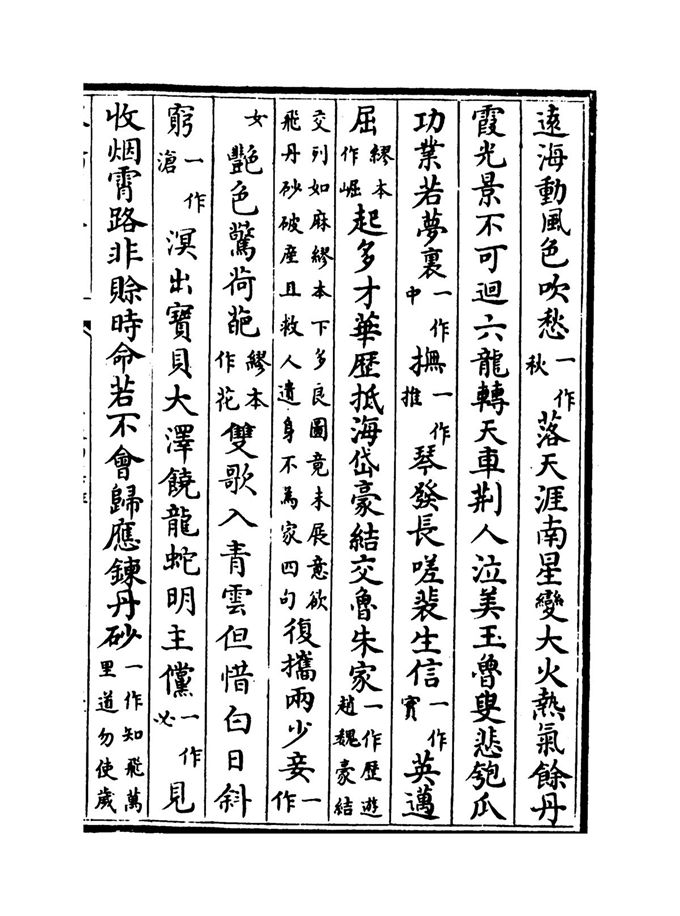 遠海動風色吹愁一作秋落天涯南星變大火熱氣餘丹
霞光景不可迴六龍轉天車荆人泣美玉魯叟悲匏瓜
功業若夢裏一作中撫一作推琴發長嗟裴生信一作實英邁
屈繆本作崛起多才華歷抵海岱豪結交魯朱家一作歷遊趙魏豪結
交列如麻繆本下多良圖竟未展意欲飛丹砂破産且救人遺身不為家四句復攜兩少妾一作
女艷色驚荷葩繆本作花雙歌入青雲但惜白日斜
窮一作滄溟出寶貝大澤饒龍蛇明主儻一作必見
收烟霄路非賒時命若不會歸應鍊丹砂一作知飛萬里道勿使歲